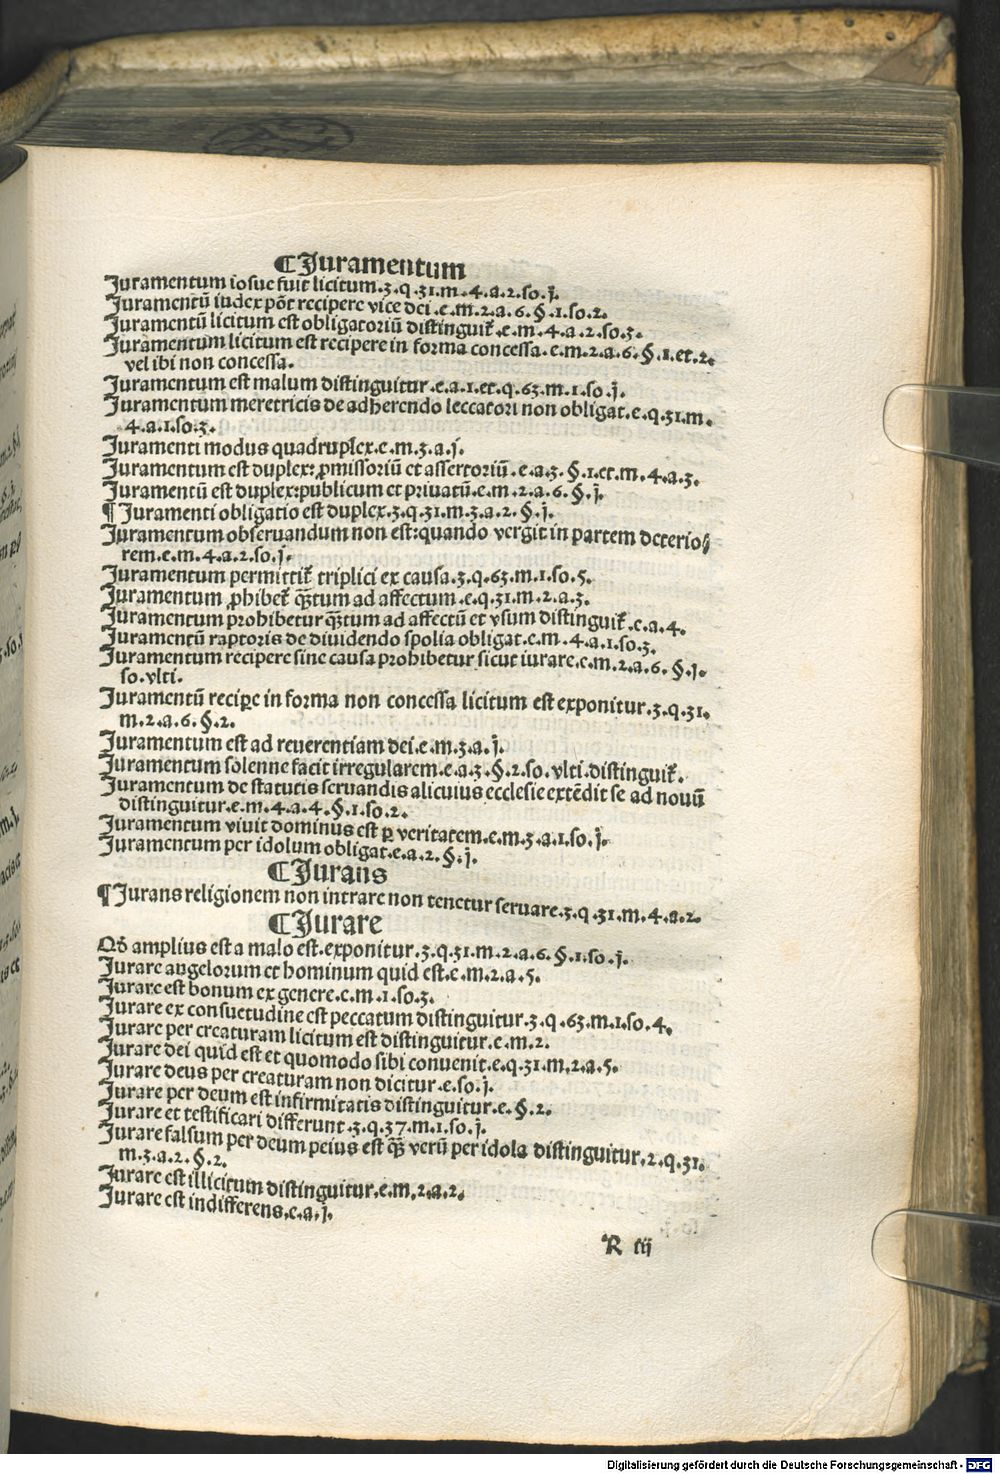 ¶Juramentum
Juramentum iosue fuit licitum.3.q.31.m.4.a.2.so.j.
Juramentū iudex pōt recipere vice dei.e.m.2.a.6.§.1.so.2.
Juramentū licitum est obligatoriū distinguiť.e.m.4.a.2.so.3.
Juramentum licitum est recipere in forma concessa.e.m.2.a.6.§.1.et.2.
vel ibi non concessa.
Juramentum est malum distinguitur.e.a.1.et.q.63.m.1.so.j.
Juramentum meretricis de adherendo leccatori non obligat.e.q.31.m.
4.a.1.so.3.
Juramenti modus quadruplex.e.m.3.a.j.
Juramentum est duplex:ꝓmissoriū et assertoriū.e.a.3.§.1.et.m.4.a.3.
Juramentū est duplex:publicum et priuatū.e.m.2.a.6.§.j.
¶Juramenti obligatio est duplex.3.q.31.m.3.a.2.§.j.
Juramentum obseruandum non est:quando vergit in partem deterio⸗
rem.e.m.4.a.2.so.j.
Juramentum permittiť triplici ex causa.3.q.63.m.1.so.5.
Juramentum ꝓhibeť qꝫtum ad affectum.e.q.31.m.2.a.3.
Juramentum prohibetur qꝫtum ad affectū et vsum distinguiť.e.a.4.
Juramentū raptoris de diuidendo spolia obligat.e.m.4.a.1.so.3.
Juramentum recipere sine causa prohibetur sicut iurare.e.m.2.a.6.§.j.
so.vlti.
Juramentū recipꝑe in forma non concessa licitum est exponitur.3.q.31.
m.2.a.6.§.2.
Juramentum est ad reuerentiam dei.e.m.3.a.j.
Juramentum solenne facit irregularem.e.a.3.§.2.so.vlti.distinguiť.
Juramentum de statutis seruandis alicuius ecclesie extēdit se ad nouū
distinguitur.e.m.4.a.4.§.1.so.2.
Juramentum viuit dominus est ꝑ veritatem.e.m.3.a.1.so.j.
Juramentum per idolum obligat.e.a.2.§.j.
¶Jurans
¶Jurans religionem non intrare non tenetur seruare.3.q.31.m.4.a.2.
¶Jurare
Qđ amplius est a malo est.exponitur.3.q.31.m.2.a.6.§.1.so.j.
Jurare angelorum et hominum quid est.e.m.2.a.5.
Jurare est bonum ex genere.e.m.1.so.3.
Jurare ex consuetudine est peccatum distinguitur.3.q.63.m.1.so.4.
Jurare per creaturam licitum est distinguitur.e.m.2.
Jurare dei quid est et quomodo sibi conuenit.e.q.31.m.2.a.5.
Jurare deus per creaturam non dicitur.e.so.j.
Jurare per deum est infirmitatis distinguitur.e.§.2.
Jurare et testificari differunt.3.q.37.m.1.so.j.
Jurare falsum per deum peius est qꝫ verū per idola distinguitur.2.q.31.
m.3.a.2.§.2.
Jurare est illicitum distinguitur.e.m.2.a.2.
Jurare est indifferens.e.a.j.
R iij
Digitalisierung gefördert durch die Deutsche Forschungsgemeinschaft - DFG